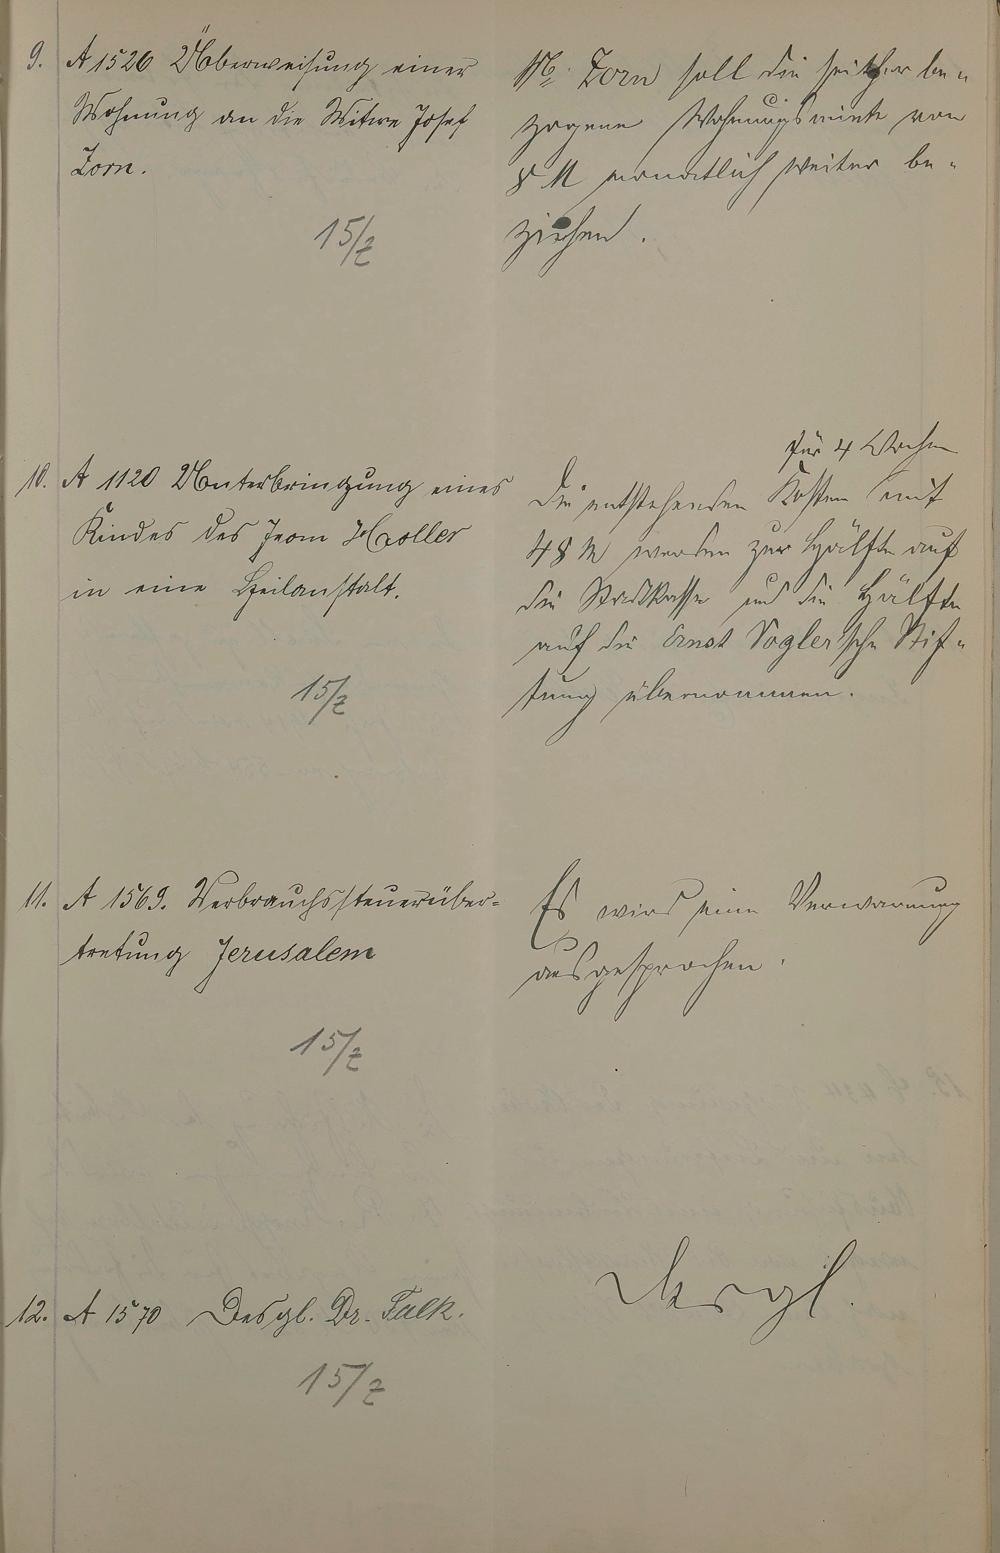 9. A 1526 Überweisung einer
Wohnung an die Witwe Josef
Zorn.
15/Z
We. Zorn soll die seither be-
zogene Wohnungsmiete von
8 M monatlich weiter be-
ziehen.
10. A 1120 Unterbringung eines
Kindes des Jean Holler
in eine Heilanstalt.
15/Z
für 4 Wochen
Die entstehenden Kosten mit
48 M werden zur Hälfte auf
die Stadtkasse und die Hälfte
auf die Ernst Vogler'sche Stif-
tung übernommen.
11. A 1569. Verbrauchssteuerüber-
tretung Jerusalem
15/Z
Es wird eine Verwarnung
ausgesprochen.
12. A 1570 Desgl. Dr. Falk.
15/Z
Desgl.